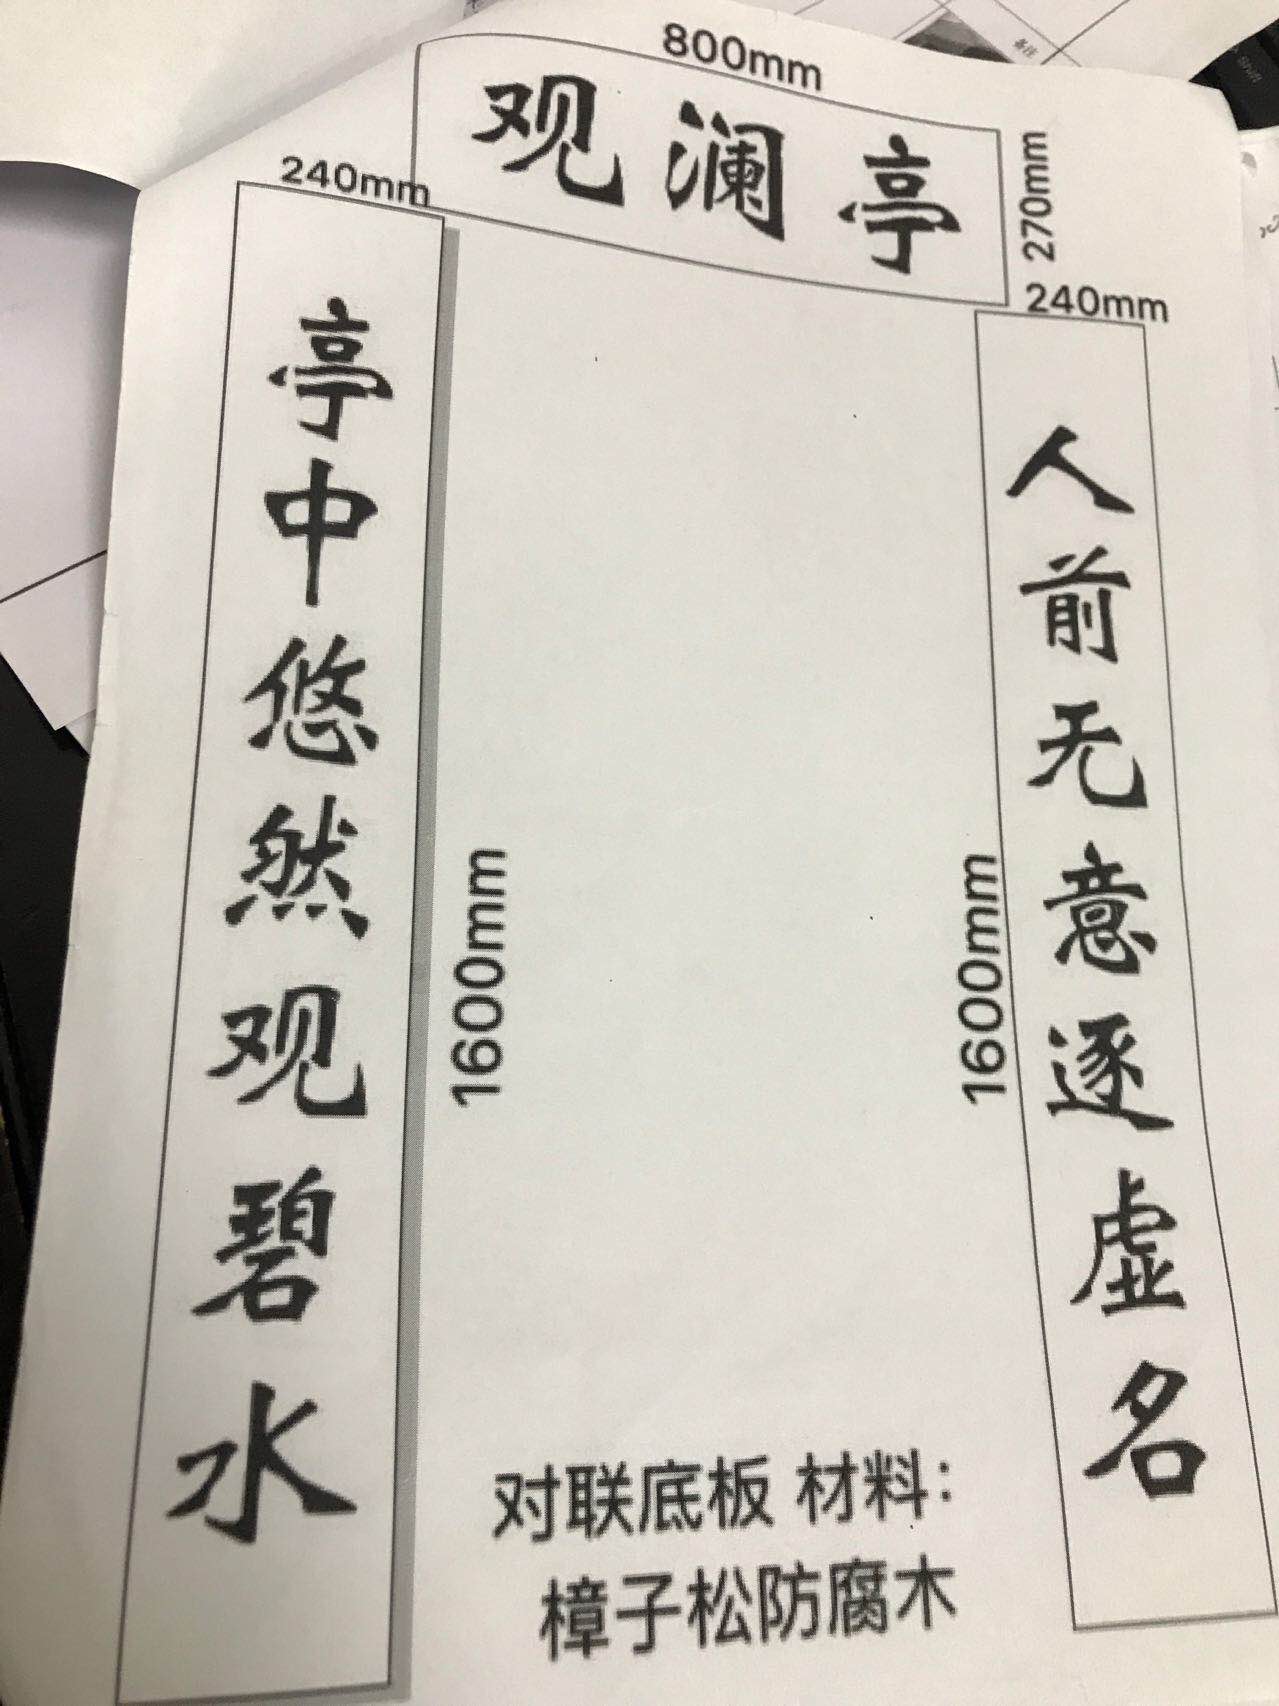 800mm
观澜亭
270mm
240mm
240mm
亭中悠然观碧水
1600mm
1600mm
人前无意逐虚名
对联底板 材料：
樟子松防腐木
备注
Shift